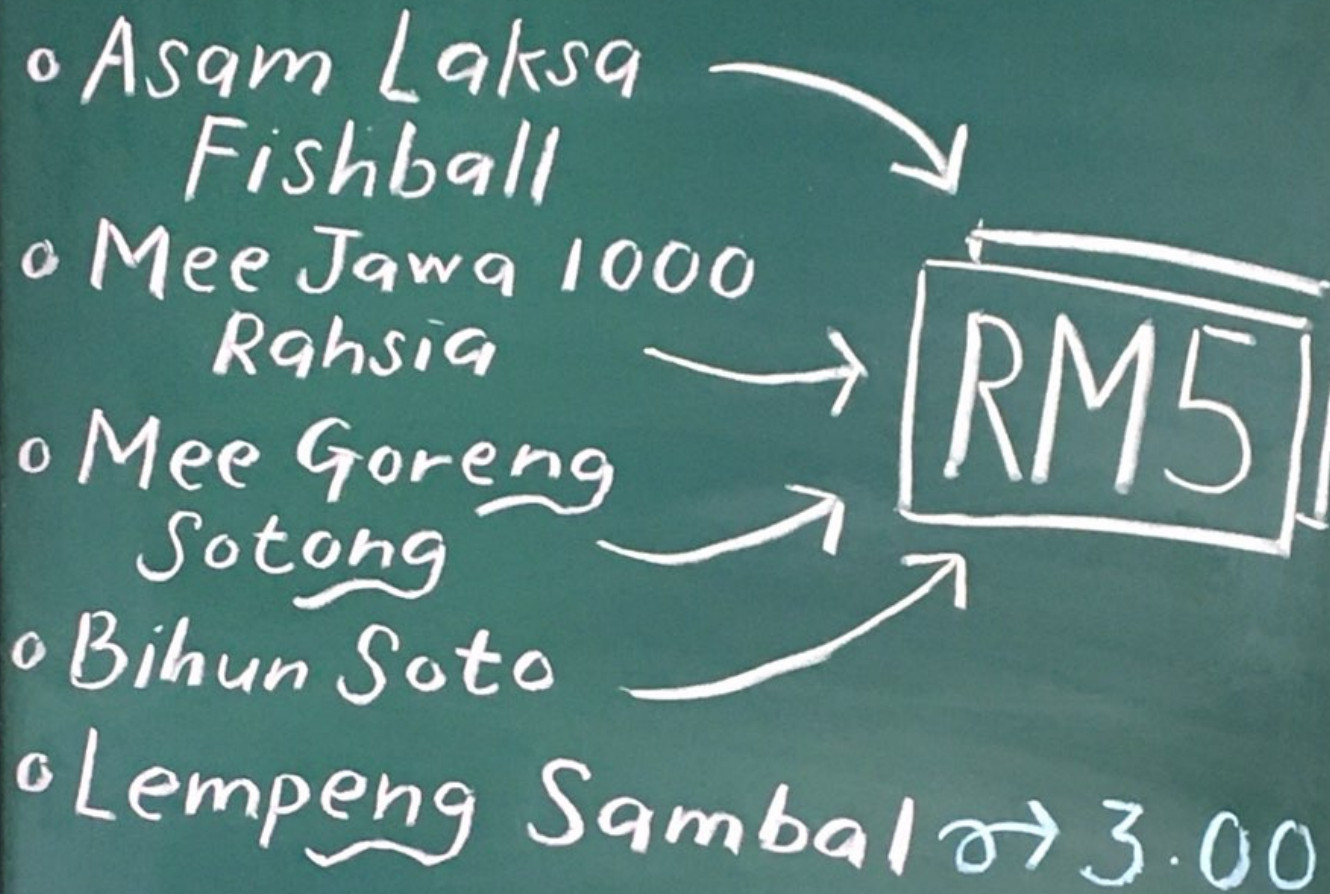 Asam Laksa
Fishball
Mee Jawa 1000
Rahsia
RM5
Mee Goreng
Sotong
Bihun Soto
Lempeng Sambal → 3.00